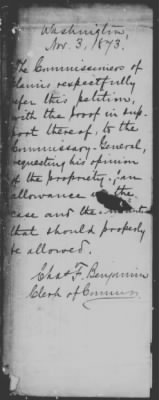 Washington,
Nov. 3, 1873.
The Commissioners of
Claims respectfully
refer this petition,
with the proof in sup-
port thereof, to the
Commissary-General,
requesting his opinion
of the propriety of an
allowance in the
case and the amount
that should properly
be allowed.
Chas F. Benjamin
Clerk of Commrs.